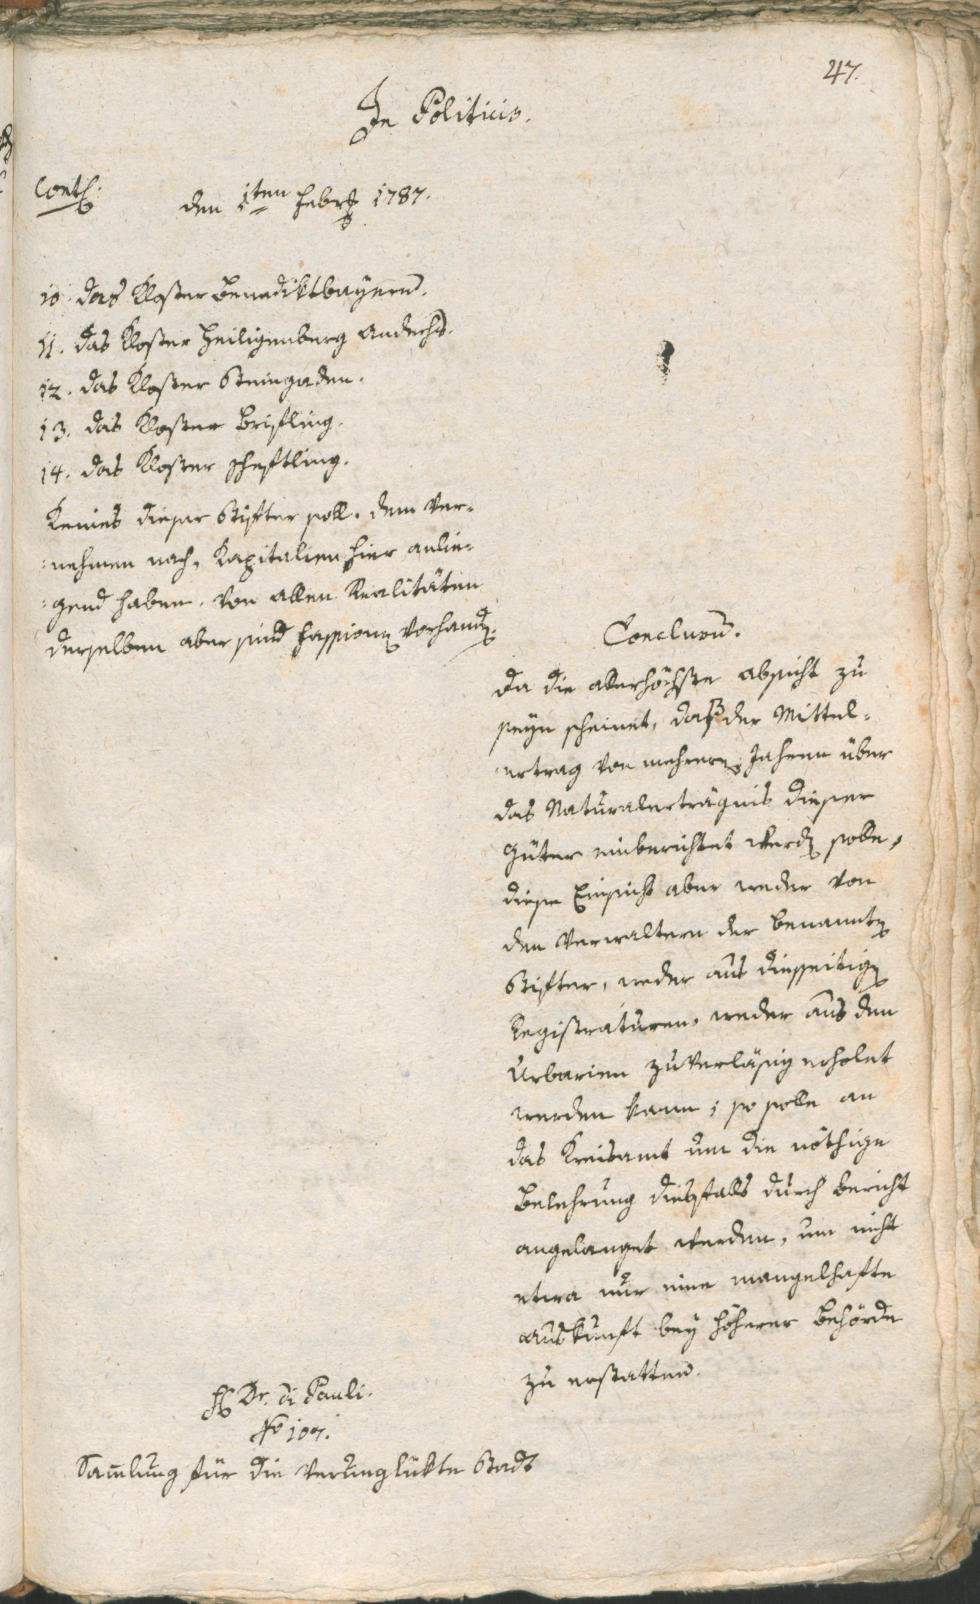 47.
In Politicis.
Contl:
den 1ten Febr: 1787.
10. das Kloster Benediktbayern.
11. das Kloster Heiligenberg Andechs.
12. das Kloster Steingaden.
13. das Kloster
14. das Kloster Scheftling.
Keines dieser Stifter soll, dem Ver-
:nehmen nach, Kapitalien hier anlie-
:gend haben. Von allen Realitäten
derselben aber sind Fassionen vorhanden.
Conclusum.
Da die allerhöchste absicht zu
seyn scheinet, daß der Mittel-
ertrag von mehreren Jahren über
das Naturalerträgnis dieser
Güter einberichtet werden solle,
diese Einsicht aber weder von
den Verwaltern der benannten
Stifter, weder aus diesseitigen
Registraturen, weder aus den
Urbarien zuverläßig erholet
werden kann; so solle an
das Kreisamt um die nöthige
Belehrung diesfalls durch bericht
angelanget werden, um nicht
etwa nur eine mangelhafte
auskunft bey höherer Behörde
zu erstatten.
H: Dr. di Pauli.
No 107.
Sammlung für die verunglükte Stadt